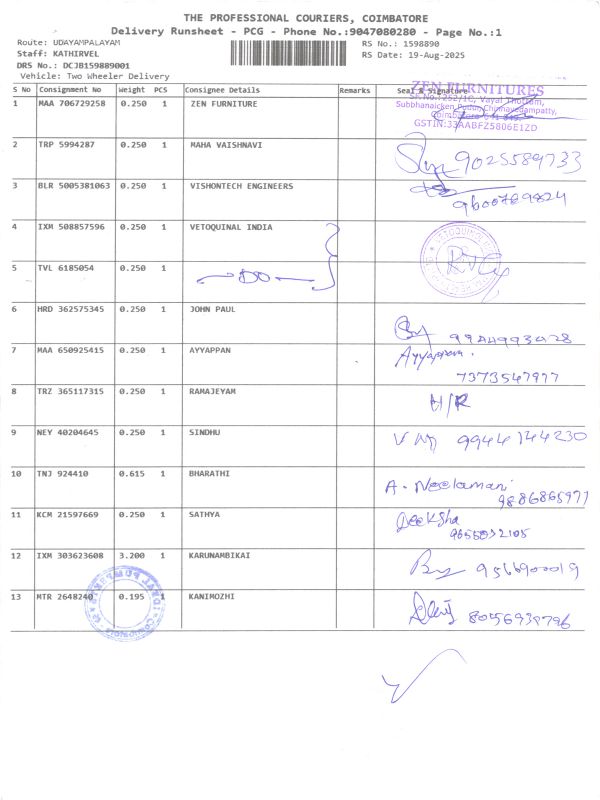 THE PROFESSIONAL COURIERS, COIMBATORE
Delivery Runsheet - PCG - Phone No.:9047080280 - Page No.:1
Route: UDAYAMPALAYAM RS No.: 1598890
Staff: KATHIRVEL RS Date: 19-Aug-2025
DRS No.: DCJB159889001
Vehicle: Two Wheeler Delivery
S No Consignment No Weight PCS Consignee Details Remarks Seal & Signature
ZEN FURNITURES
1 MAA 706729258 0.250 1 ZEN FURNITURE
SF.No:252/1C, Vayal Thottam,
Subbhanaicken Pudur, Chinnavedampatty,
GSTIN:33AABFZ5806E1ZD
2 TRP 5994287 0.250 1 MAHA VAISHNAVI 9025589733
3 BLR 5005381063 0.250 1 VISHONTECH ENGINEERS
4 IXM 508857596 0.250 1 VETOQUINAL INDIA
5 TVL 6185054 0.250 1 DO
6 HRD 362575345 1 0.250 JOHN PAUL
7 MAA 650925415 0.250 1 AYYAPPAN Ayyappan
7373547977
8 TRZ 365117315 0.250 1 RAMAJEYAM H/R
9 NEY 40204645 0.250 1 SINDHU 9944144230
10 TNJ 924410 0.615 1 BHARATHI A. Neelamani
9886865977
11 KCM 21597669 0.250 1 SATHYA Deeksha
9655532105
12 IXM 303623608 3.200 1 KARUNAMBIKAI
13 MTR 2648240 0.195 1 KANIMOZHI 8056939796